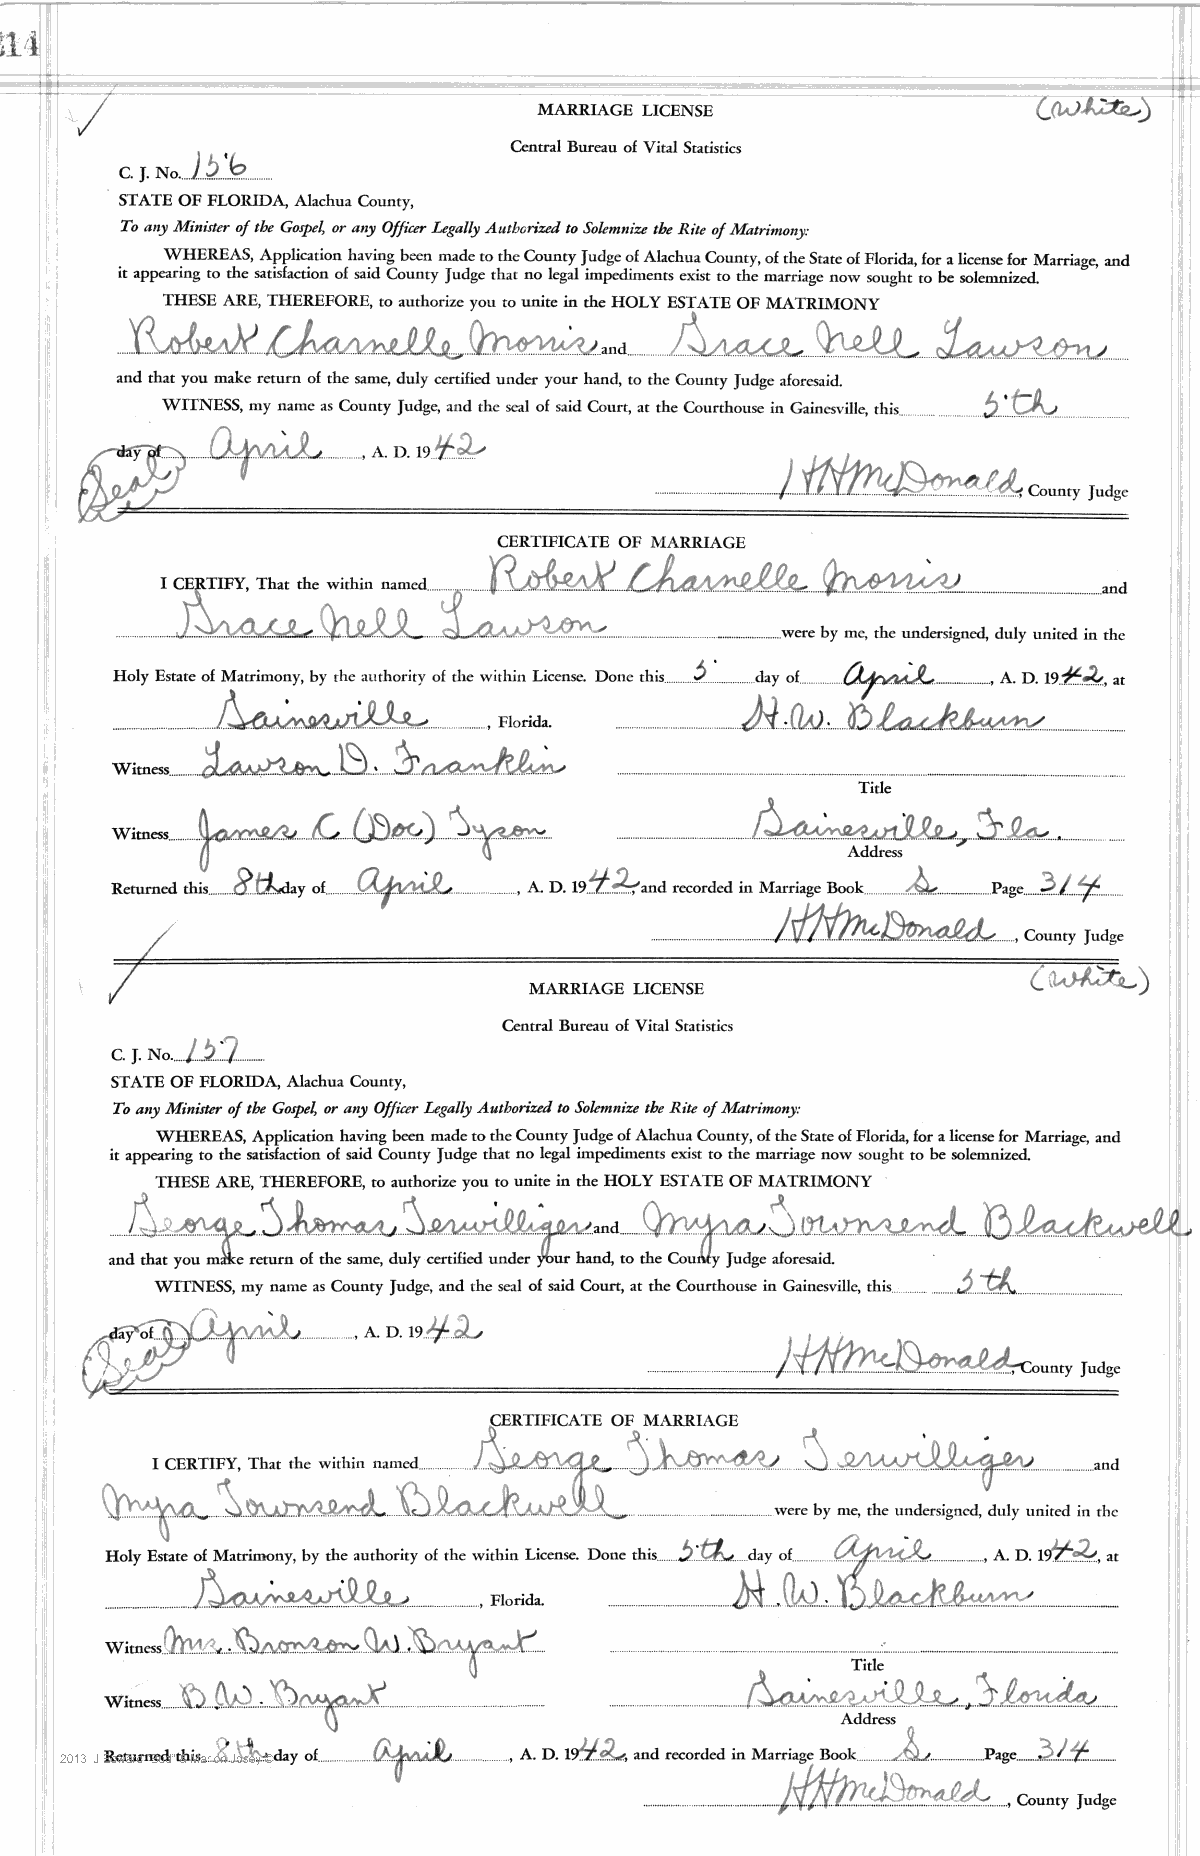 314
MARRIAGE LICENSE
(White)
Central Bureau of Vital Statistics
C. J. No. 156
STATE OF FLORIDA, Alachua County,
To any Minister of the Gospel, or any Officer Legally Authorized to Solemnize the Rite of Matrimony:
WHEREAS, Application having been made to the County Judge of Alachua County, of the State of Florida, for a license for Marriage, and
it appearing to the satisfaction of said County Judge that no legal impediments exist to the marriage now sought to be solemnized.
THESE ARE, THEREFORE, to authorize you to unite in the HOLY ESTATE OF MATRIMONY
Robert Charnelle Morris and Grace Nell Lawson
and that you make return of the same, duly certified under your hand, to the County Judge aforesaid.
WITNESS, my name as County Judge, and the seal of said Court, at the Courthouse in Gainesville, this 5th
day of April, A. D. 1942
(Seal)
HH McDonald, County Judge
CERTIFICATE OF MARRIAGE
I CERTIFY, That the within named Robert Charnelle Morris and
Grace Nell Lawson were by me, the undersigned, duly united in the
Holy Estate of Matrimony, by the authority of the within License. Done this 5 day of April, A. D. 1942, at
Gainesville, Florida. H. W. Blackburn
Witness Lawson D. Franklin
Title
Witness James C (Doc) Tyson Gainesville, Fla.
Address
Returned this 8th day of April, A. D. 1942, and recorded in Marriage Book S Page 314
HH McDonald, County Judge
MARRIAGE LICENSE
(White)
Central Bureau of Vital Statistics
C. J. No. 157
STATE OF FLORIDA, Alachua County,
To any Minister of the Gospel, or any Officer Legally Authorized to Solemnize the Rite of Matrimony:
WHEREAS, Application having been made to the County Judge of Alachua County, of the State of Florida, for a license for Marriage, and
it appearing to the satisfaction of said County Judge that no legal impediments exist to the marriage now sought to be solemnized.
THESE ARE, THEREFORE, to authorize you to unite in the HOLY ESTATE OF MATRIMONY
George Thomas Terwilliger and Myra Townsend Blackwell
and that you make return of the same, duly certified under your hand, to the County Judge aforesaid.
WITNESS, my name as County Judge, and the seal of said Court, at the Courthouse in Gainesville, this 5th
day of April, A. D. 1942
(Seal)
HH McDonald, County Judge
CERTIFICATE OF MARRIAGE
I CERTIFY, That the within named George Thomas Terwilliger and
Myra Townsend Blackwell were by me, the undersigned, duly united in the
Holy Estate of Matrimony, by the authority of the within License. Done this 5th day of April, A. D. 1942, at
Gainesville, Florida. H. W. Blackburn
Witness Mrs. Bronson W. Bryant
Title
Witness B. W. Bryant Gainesville, Florida
Address
2013 J
Returned this 8th day of April, A. D. 1942, and recorded in Marriage Book S. Page 314
HH McDonald, County Judge